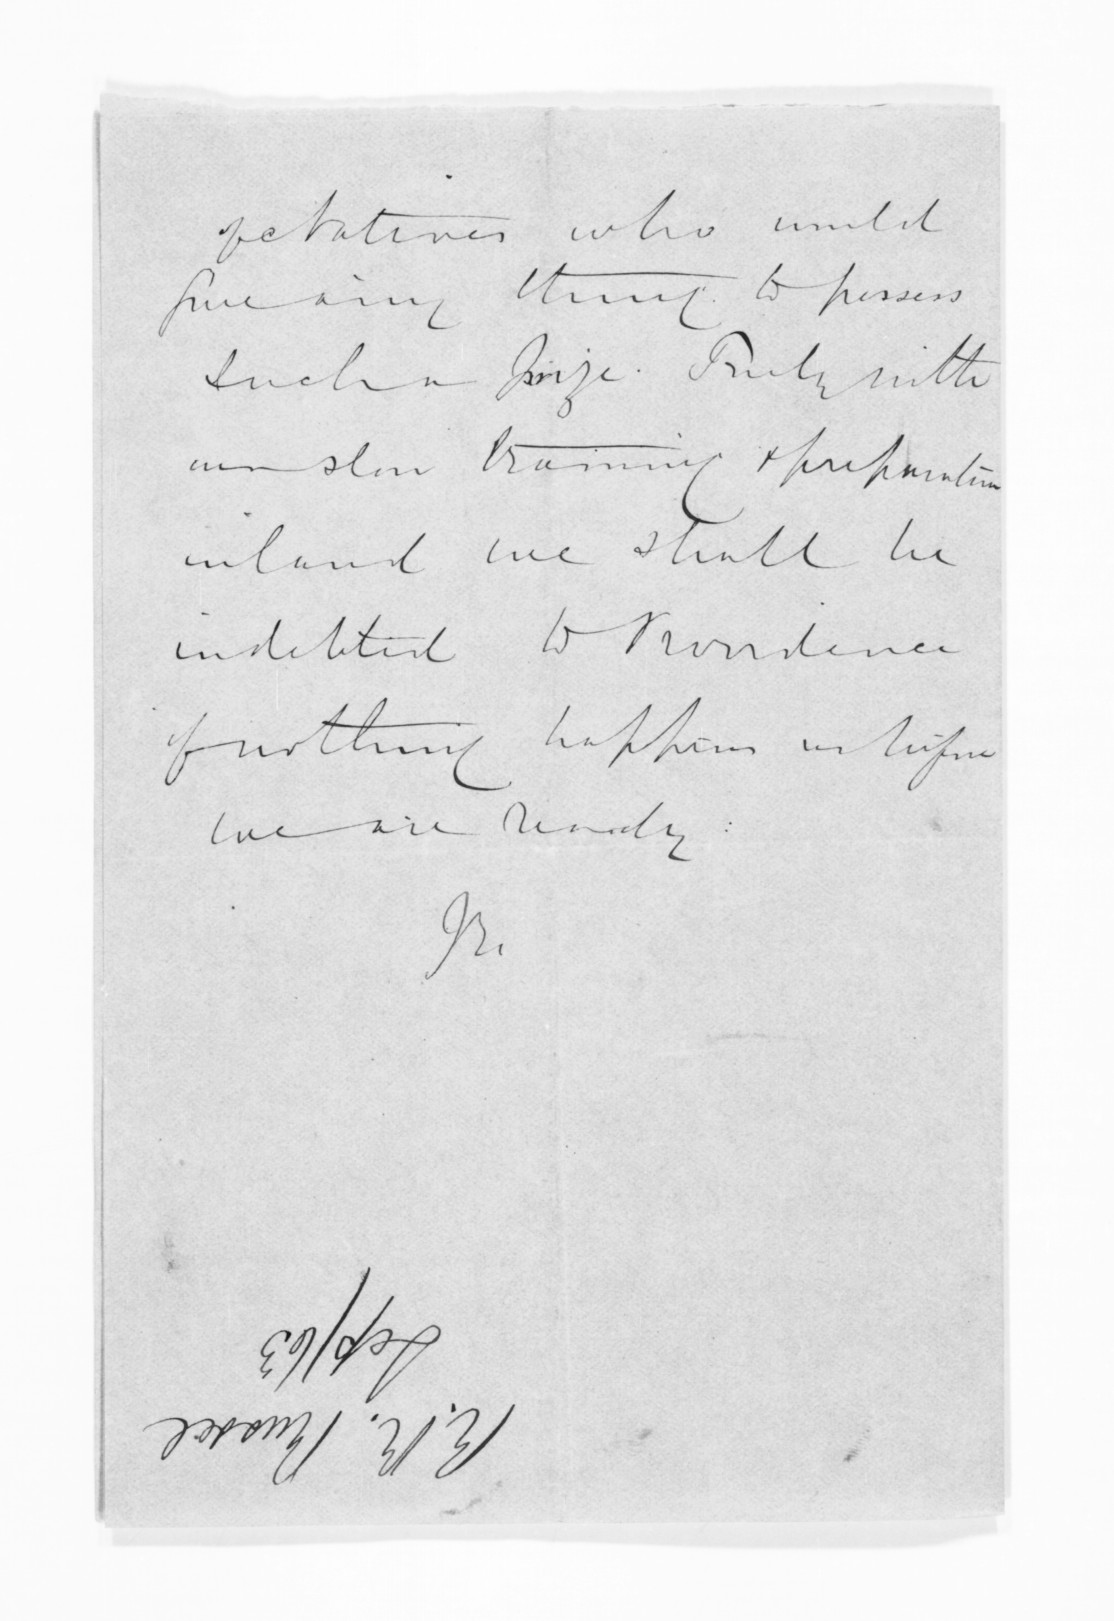 who would
give any thing to possess
such a prize. Truly with
our slow training & preparation
inland we shall be
indebted to Providence
if nothing happens us before
we are ready.
R. R. Russel
Sep/63